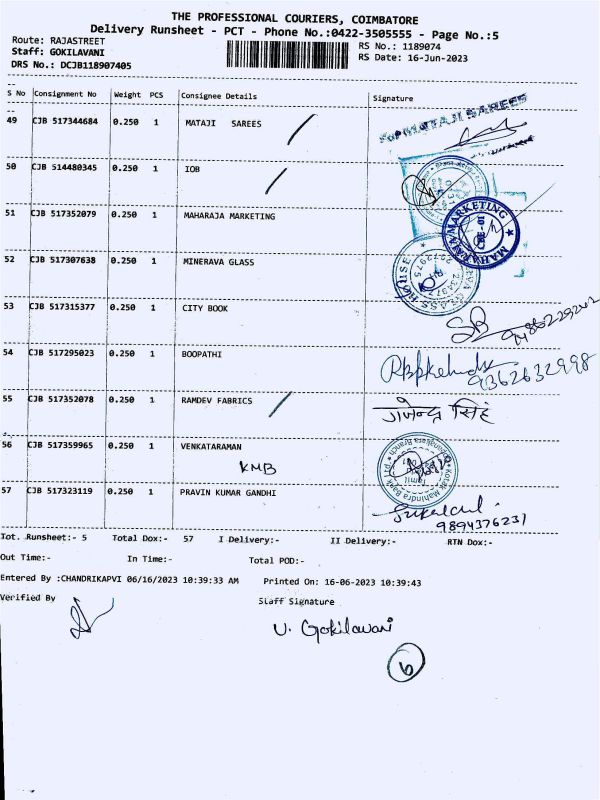 THE PROFESSIONAL COURIERS, COIMBATORE
Delivery Runsheet - PCT - Phone No.:0422-3505555 - Page No.:5
Route: RAJASTREET
RS No.: 1189074
Staff: GOKILAVANI
RS Date: 16-Jun-2023
DRS No.: DCJB118907405
S No Consignment No Weight PCS Consignee Details Signature
49 CJB 517344684 0.250 1 MATAJI SAREES
MATAJI SAREES
50 CJB 514480345 0.250 1 IOB
51 CJB 517352079 0.250 1 MAHARAJA MARKETING
MAHARAJA MARKETING
52 CJB 517307638 0.250 1 MINERAVA GLASS
GLASS HOUSE
53 CJB 517315377 0.250 1 CITY BOOK
54 CJB 517295023 0.250 1 BOOPATHI
9362632998
55 CJB 517352078 0.250 1 RAMDEV FABRICS
गजेन्द्र सिंह
56 CJB 517359965 0.250 1 VENKATARAMAN
KMB
Kotak Mahindra Bank
57 CJB 517323119 0.250 1 PRAVIN KUMAR GANDHI
9894376231
Tot. Runsheet:- 5 Total Dox:- 57 I Delivery:- II Delivery:- RTN Dox:-
Out Time:- In Time:- Total POD:-
Entered By :CHANDRIKAPVI 06/16/2023 10:39:33 AM Printed On: 16-06-2023 10:39:43
Verified By Staff Signature
U. Gokilavani
6